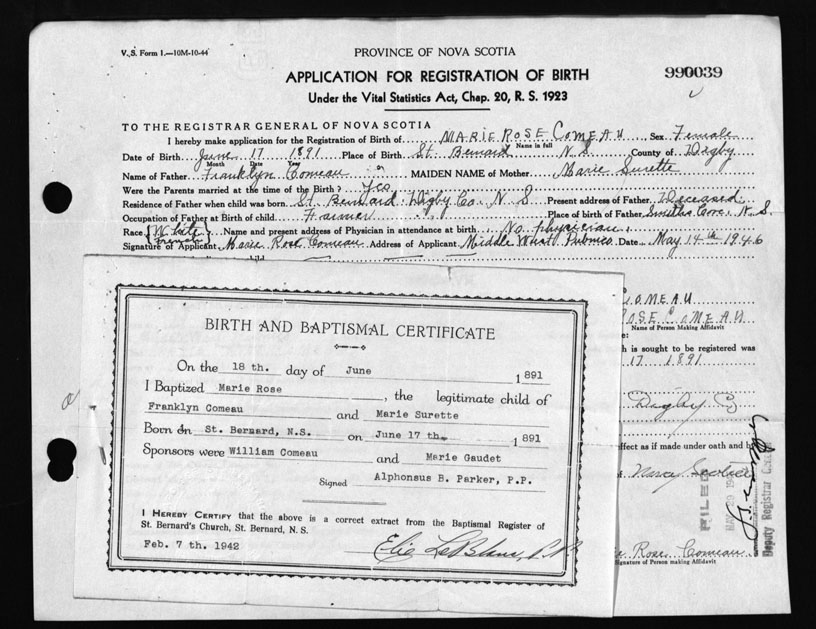 V. S. Form 1.—10M-10-44
PROVINCE OF NOVA SCOTIA
APPLICATION FOR REGISTRATION OF BIRTH
990039
Under the Vital Statistics Act, Chap. 20, R. S. 1923
TO THE REGISTRAR GENERAL OF NOVA SCOTIA
I hereby make application for the Registration of Birth of MARIE ROSE COMEAU Sex Female
Name in full
Date of Birth June 17 1891 Place of Birth St. Bernard N S County of Digby
Month Date Year
Name of Father Franklyn Comeau MAIDEN NAME of Mother Marie Surette
Were the Parents married at the time of the Birth? Yes
Residence of Father when child was born St Bernard Digby Co. N S Present address of Father Deceased
Occupation of Father at Birth of child Farmer Place of birth of Father Smiths Cove N. S.
Race {White French} Name and present address of Physician in attendance at birth No physician
Signature of Applicant Marie Rose Comeau Address of Applicant Middle West Pubnico Date May 14th 1946
child
COMEAU
ROSE COMEAU
Name of Person Making Affidavit
h is sought to be registered was
17 1891
Digby Co
ffect as if made under oath and by
Nova Scotia
FILED
Deputy Registrar
Rose Comeau
Signature of Person making Affidavit
BIRTH AND BAPTISMAL CERTIFICATE
On the 18 th. day of June 1891
I Baptized Marie Rose, the legitimate child of
Franklyn Comeau and Marie Surette
Born in St. Bernard, N.S. on June 17 th. 1891
Sponsors were William Comeau and Marie Gaudet
Signed Alphonsus B. Parker, P.P.
I HEREBY CERTIFY that the above is a correct extract from the Baptismal Register of
St. Bernard's Church, St. Bernard, N. S.
Feb. 7 th. 1942 Elie LeBlanc, P.P.